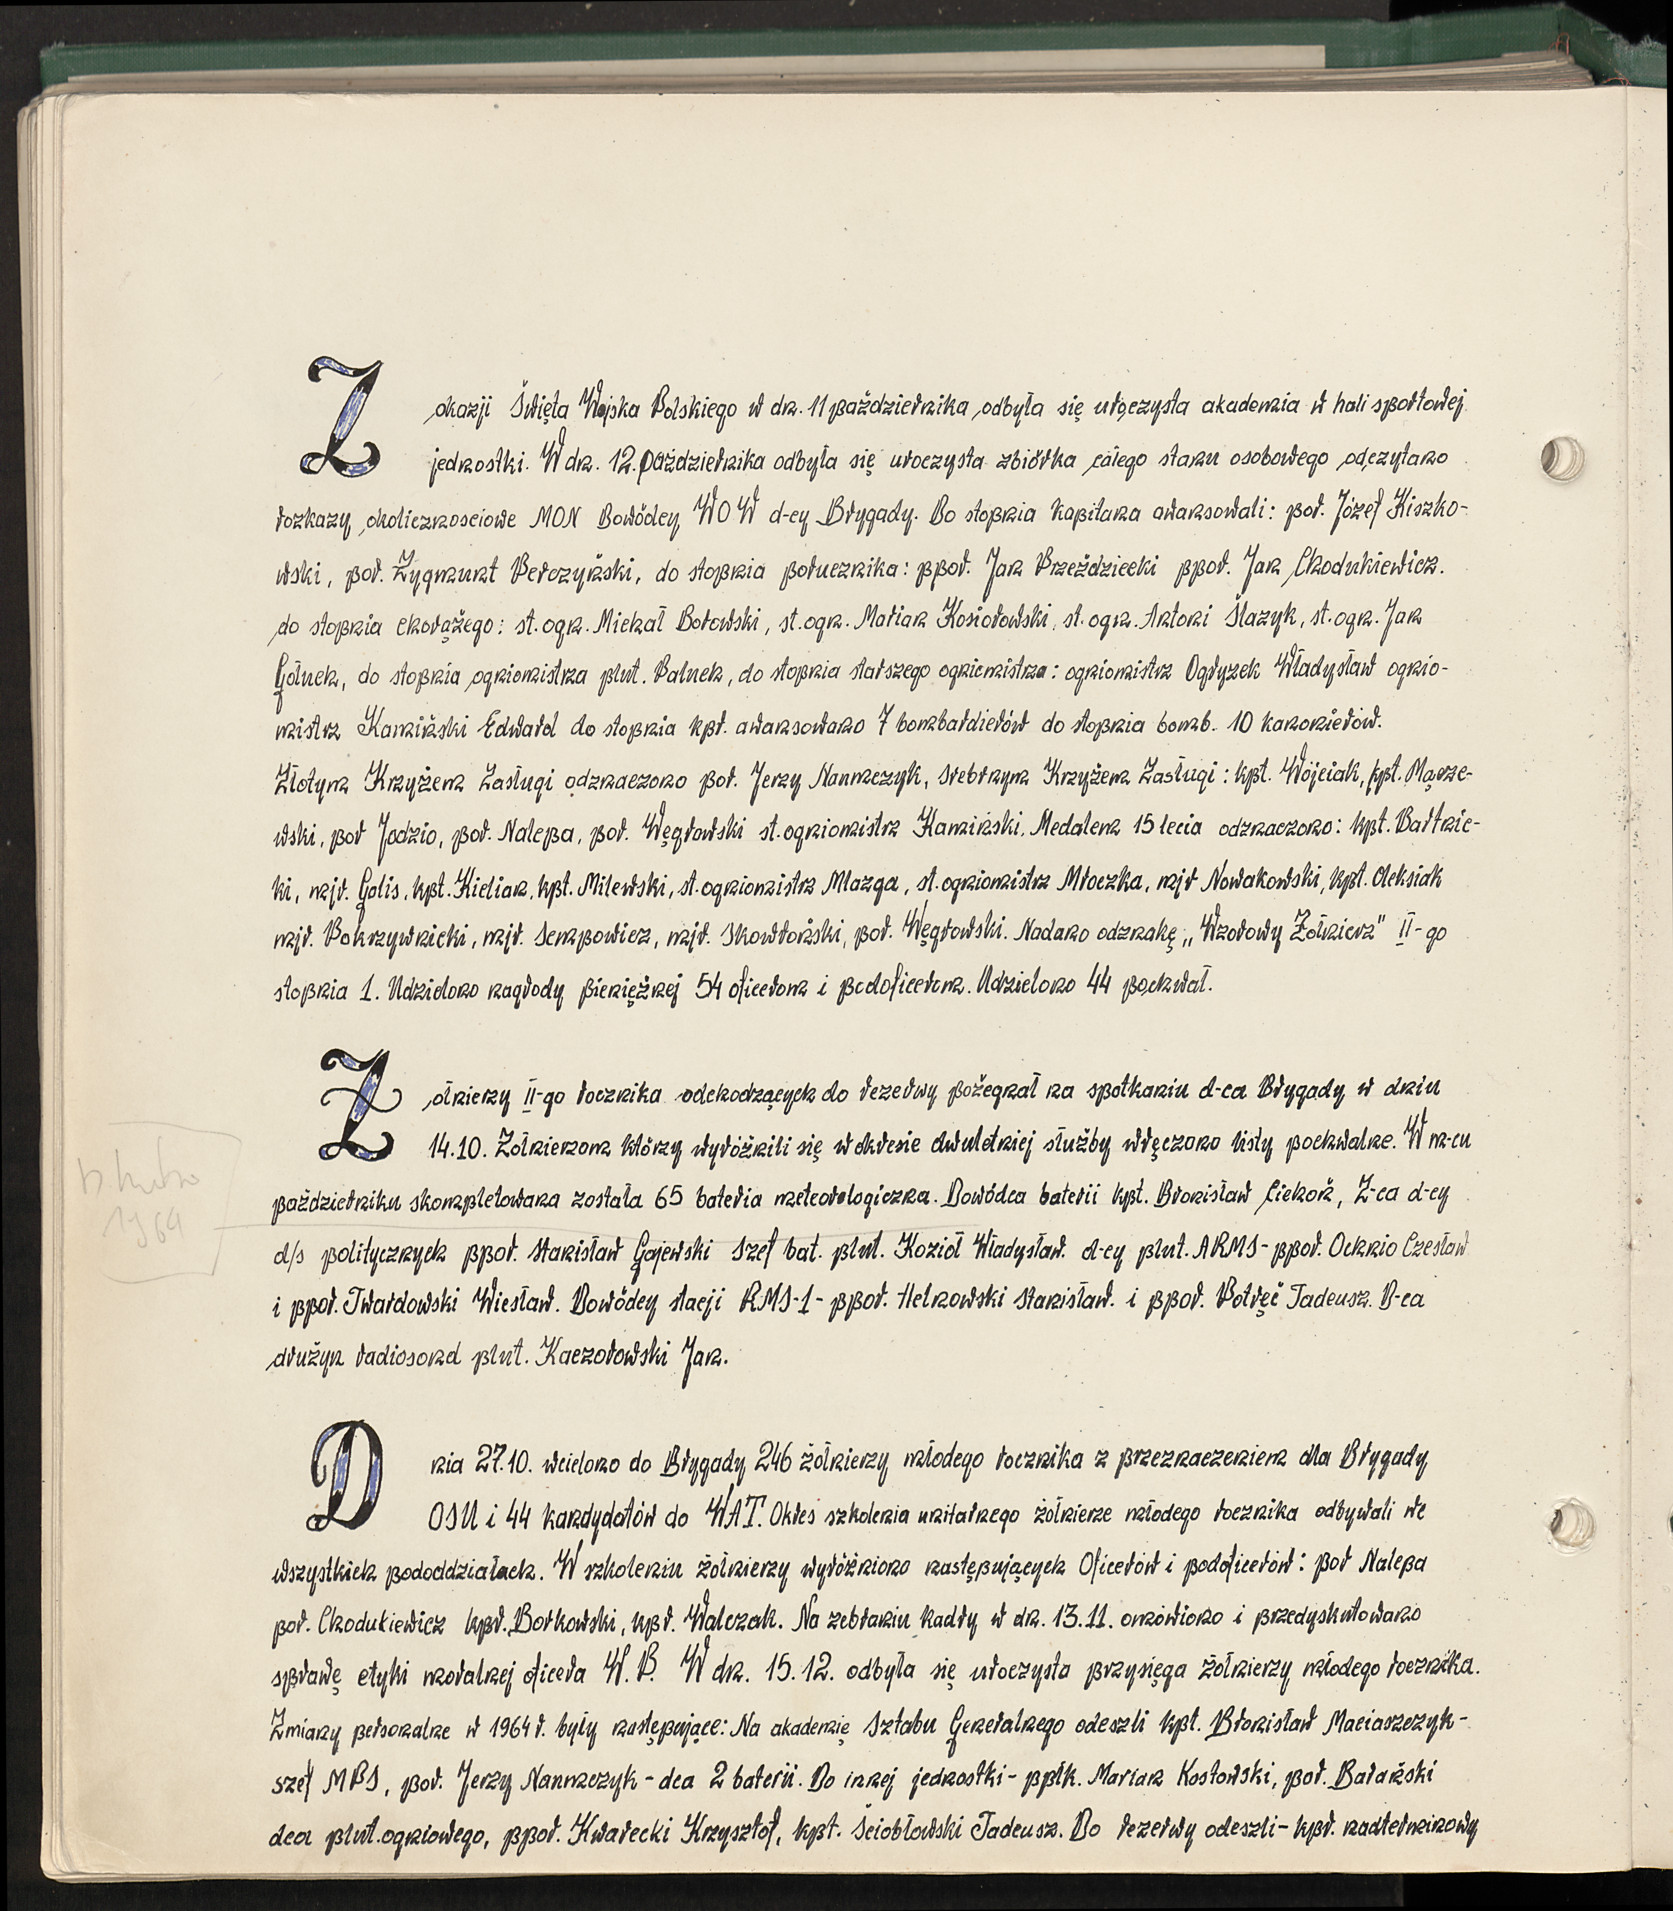 Z okazji Święta Wojska Polskiego w dn. 11 października odbyła się uroczysta akademia w hali sportowej
jednostki. W dn. 12. października odbyła się uroczysta zbiórka całego stanu osobowego odczytano
rozkazy okolicznościowe MON Dowódcy WOW d-cy Brygady. Do stopnia kapitana awansowali: por. Józef Kiszko-
wski, por. Zygmunt Perczyński, do stopnia porucznika: ppor. Jan Przeździecki ppor. Jan Chodukiewicz.
do stopnia chorążego: st. ogn. Michał Borowski, st. ogn. Marian Kosiorowski, st. ogn. Antoni Ślazyk, st. ogn. Jan
Gólnek, do stopnia ogniomistrza plut. Palnek, do stopnia starszego ogniomistrza: ogniomistrz Ogryzek Władysław ognio-
mistrz Kamiński Edward do stopnia kpr. awansowano 7 bombardierów do stopnia bomb. 10 kanonierów.
Złotym Krzyżem Zasługi odznaczono por. Jerzy Naumczyk, srebrnym Krzyżem Zasługi: kpt. Wójciak, kpt. Mącze-
wski, por Jodzio, por. Nalepa, por. Węgrowski st. ogniomistrz Kamiński. Medalem 15 lecia odznaczono: kpt. Bartnic-
ki, mjr. Golis, kpt. Kielian, kpt. Milewski, st. ogniomistrz Mlazga, st. ogniomistrz Mroczka, mjr Nowakowski, kpt. Oleksiak
mjr. Pokrzywnicki, mjr. Sempowicz, mjr. Skowroński, por. Węgrowski. Nadano odznakę „Wzorowy Żołnierz" II-go
stopnia 1. Udzielono nagrody pieniężnej 54 oficerom i podoficerom. Udzielono 44 pochwał.
Żołnierzy II-go rocznika odchodzących do rezerwy pożegnał na spotkaniu d-ca Brygady w dniu
14.10. Żołnierzom którzy wyróżnili się w okresie dwuletniej służby wręczono listy pochwalne. W m-cu
październiku skompletowana została 65 bateria meteorologiczna. Dowódca baterii kpt. Bronisław Cichoń, Z-ca d-cy
d/s politycznych ppor. Stanisław Gajewski Szef bat. plut. Kozioł Władysław. d-cy plut. ARMS - ppor. Ochnio Czesław
i ppor. Twardowski Wiesław. Dowódcy stacji RMS-1 - ppor. Helnowski Stanisław. i ppor. Połręć Tadeusz. D-ca
drużyn radiosond plut. Kaczorowski Jan.
1964
Dnia 27.10. wcielono do Brygady 246 żółnierzy młodego rocznika z przeznaczeniem dla Brygady
OSU i 44 kandydatów do WAT. Okres szkolenia unitarnego żołnierze młodego rocznika odbywali we
wszystkich pododdziałach. W szkoleniu żołnierzy wyróżniono następujących Oficerów i podoficerów: por Nalepa
por. Chodukiewicz kpr. Borkowski, kpr. Walczak. Na zebraniu kadry w dn. 13.11. omówiono i przedyskutowano
sprawę etyki moralnej oficera W.P. W dn. 15.12. odbyła się uroczysta przysięga żołnierzy młodego rocznika.
Zmiany personalne w 1964 r. były następujące: Na akademię Sztabu Generalnego odeszli kpt. Bronisław Maciaszczyk -
szef MPS, por. Jerzy Naumczyk - dca 2 baterii. Do innej jednostki - ppłk. Marian Kostowski, por. Barański
dca plut. ogniowego, ppor. Kwarecki Krzysztof, kpt. Ściobłowski Tadeusz. Do rezerwy odeszli - kpr. nadterminowy